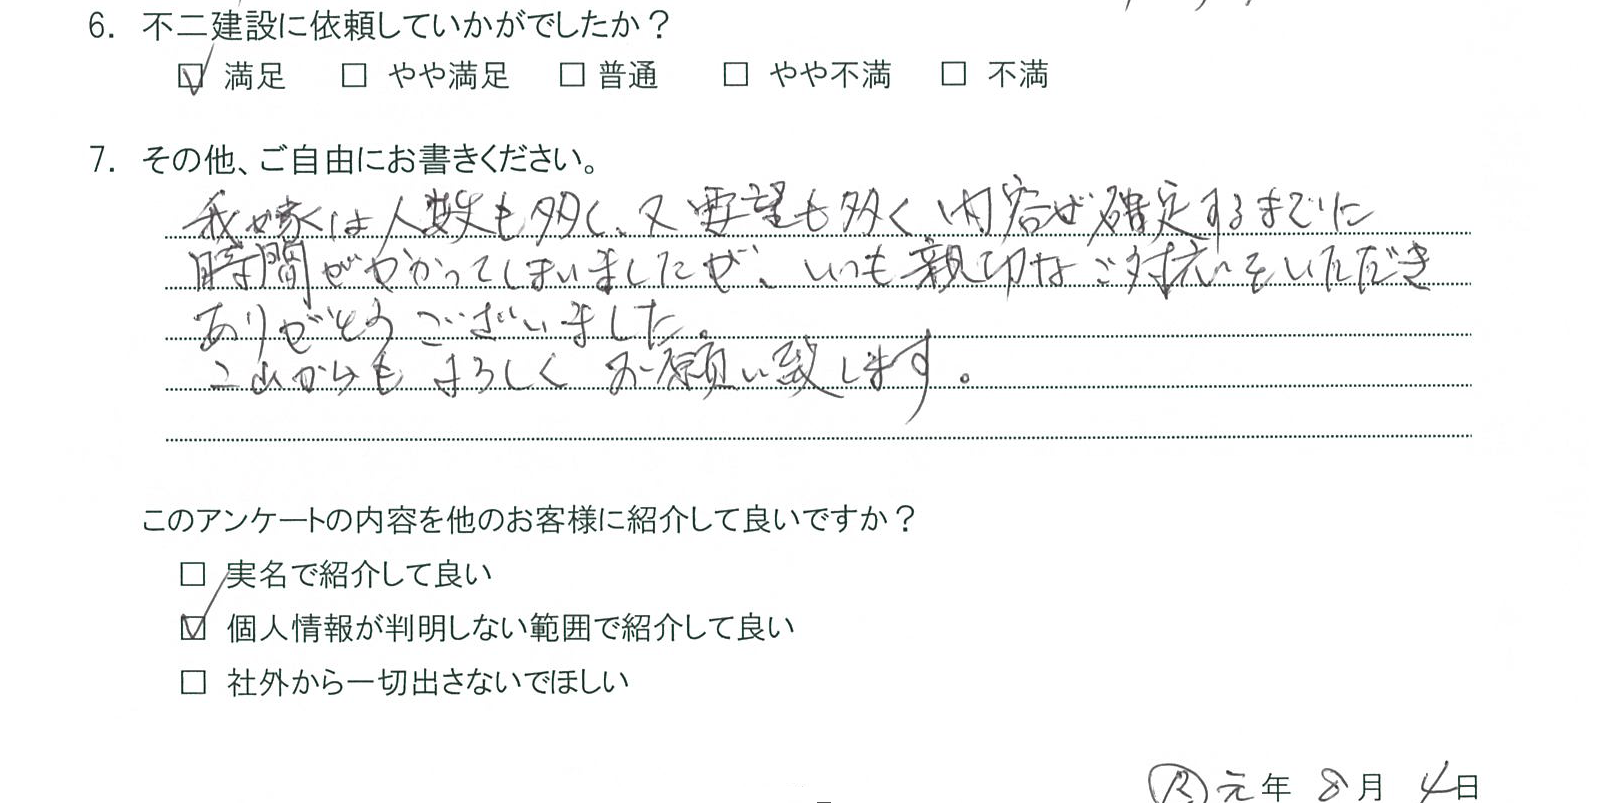 6. 不二建設に依頼していかがでしたか？
☑ 満足 □ やや満足 □ 普通 □ やや不満 □ 不満
7. その他、ご自由にお書きください。
我が家は人数も多く、又要望も多く内容が確定するまでに
時間がかかってしまいましたが、いつも親切なご対応をいただき
ありがとうございました。
これからもよろしくお願い致します。
このアンケートの内容を他のお客様に紹介して良いですか？
□ 実名で紹介して良い
☑ 個人情報が判明しない範囲で紹介して良い
□ 社外から一切出さないでほしい
Ⓡ元年 8月 4日